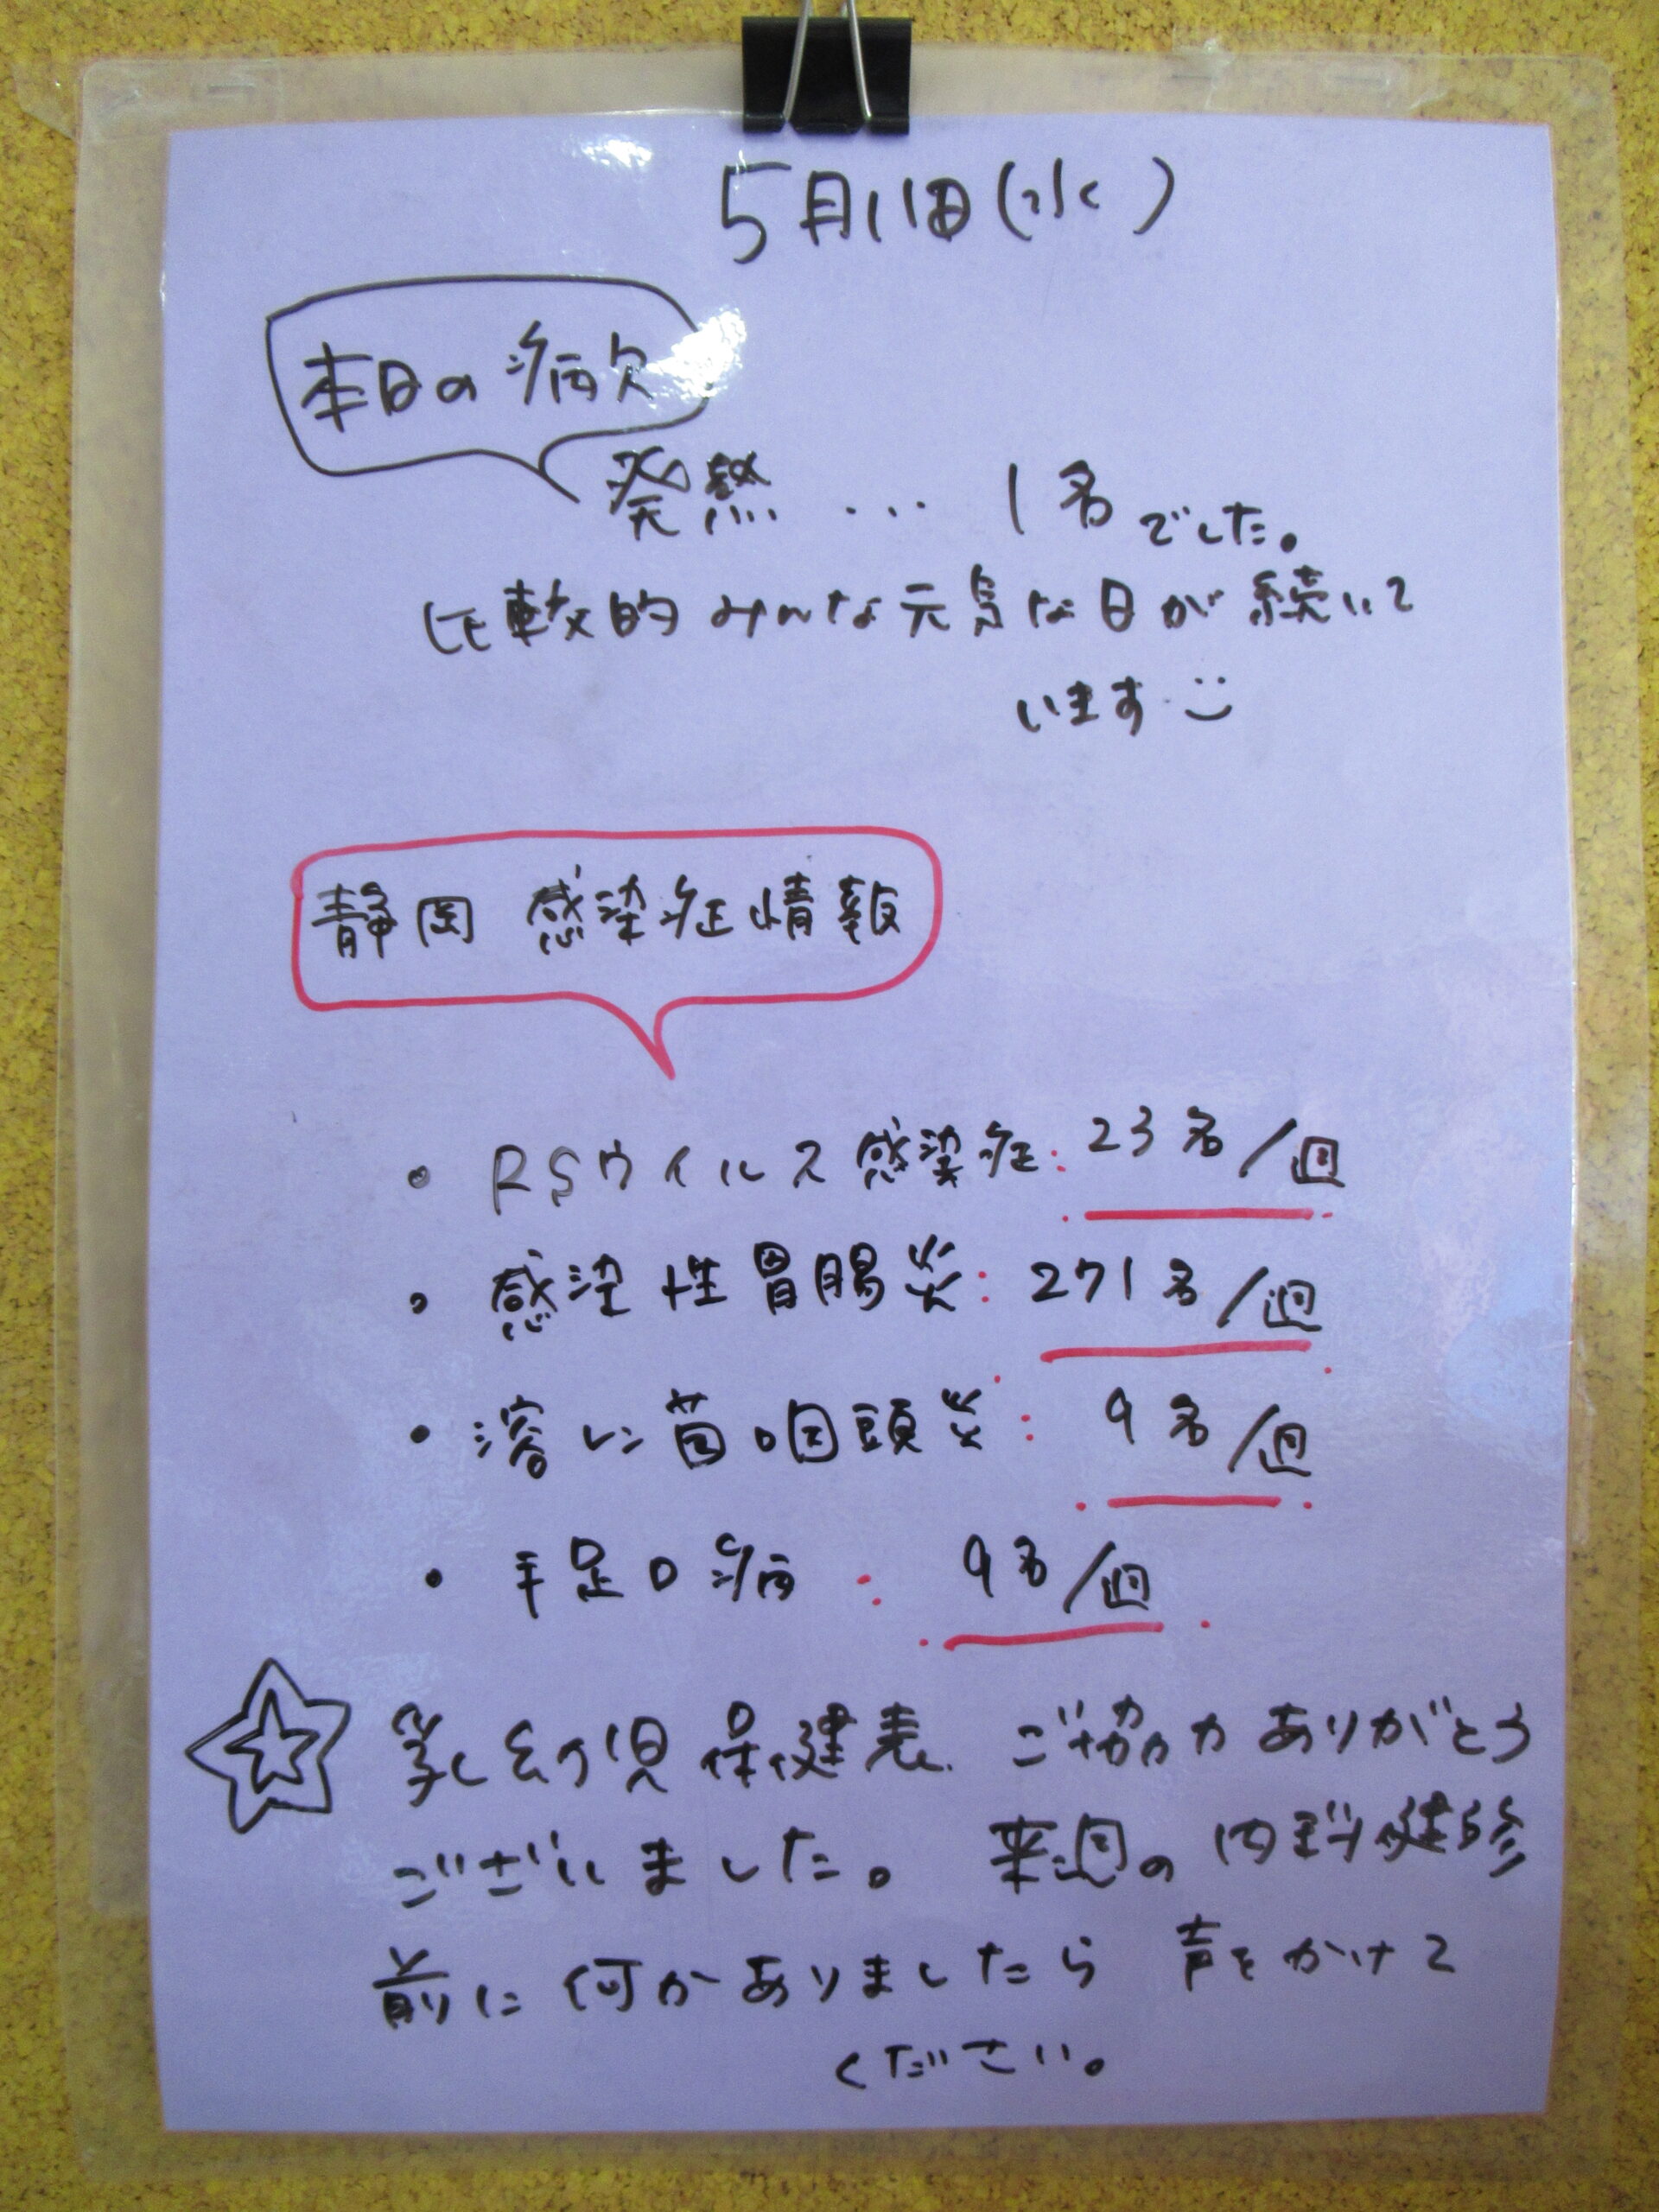 5月11日(水)
本日の病欠
発熱 ... 1名でした。
比較的みんな元気な日が続いて
います
静岡 感染症情報
・RSウイルス感染症: 23名/週
・感染性胃腸炎: 271名/週
・溶レン菌咽頭炎: 9名/週
・手足口病: 9名/週
乳幼児保健表 ご協力ありがとう
ございました。来週の内科健診
前に何かありましたら 声をかけて
ください。